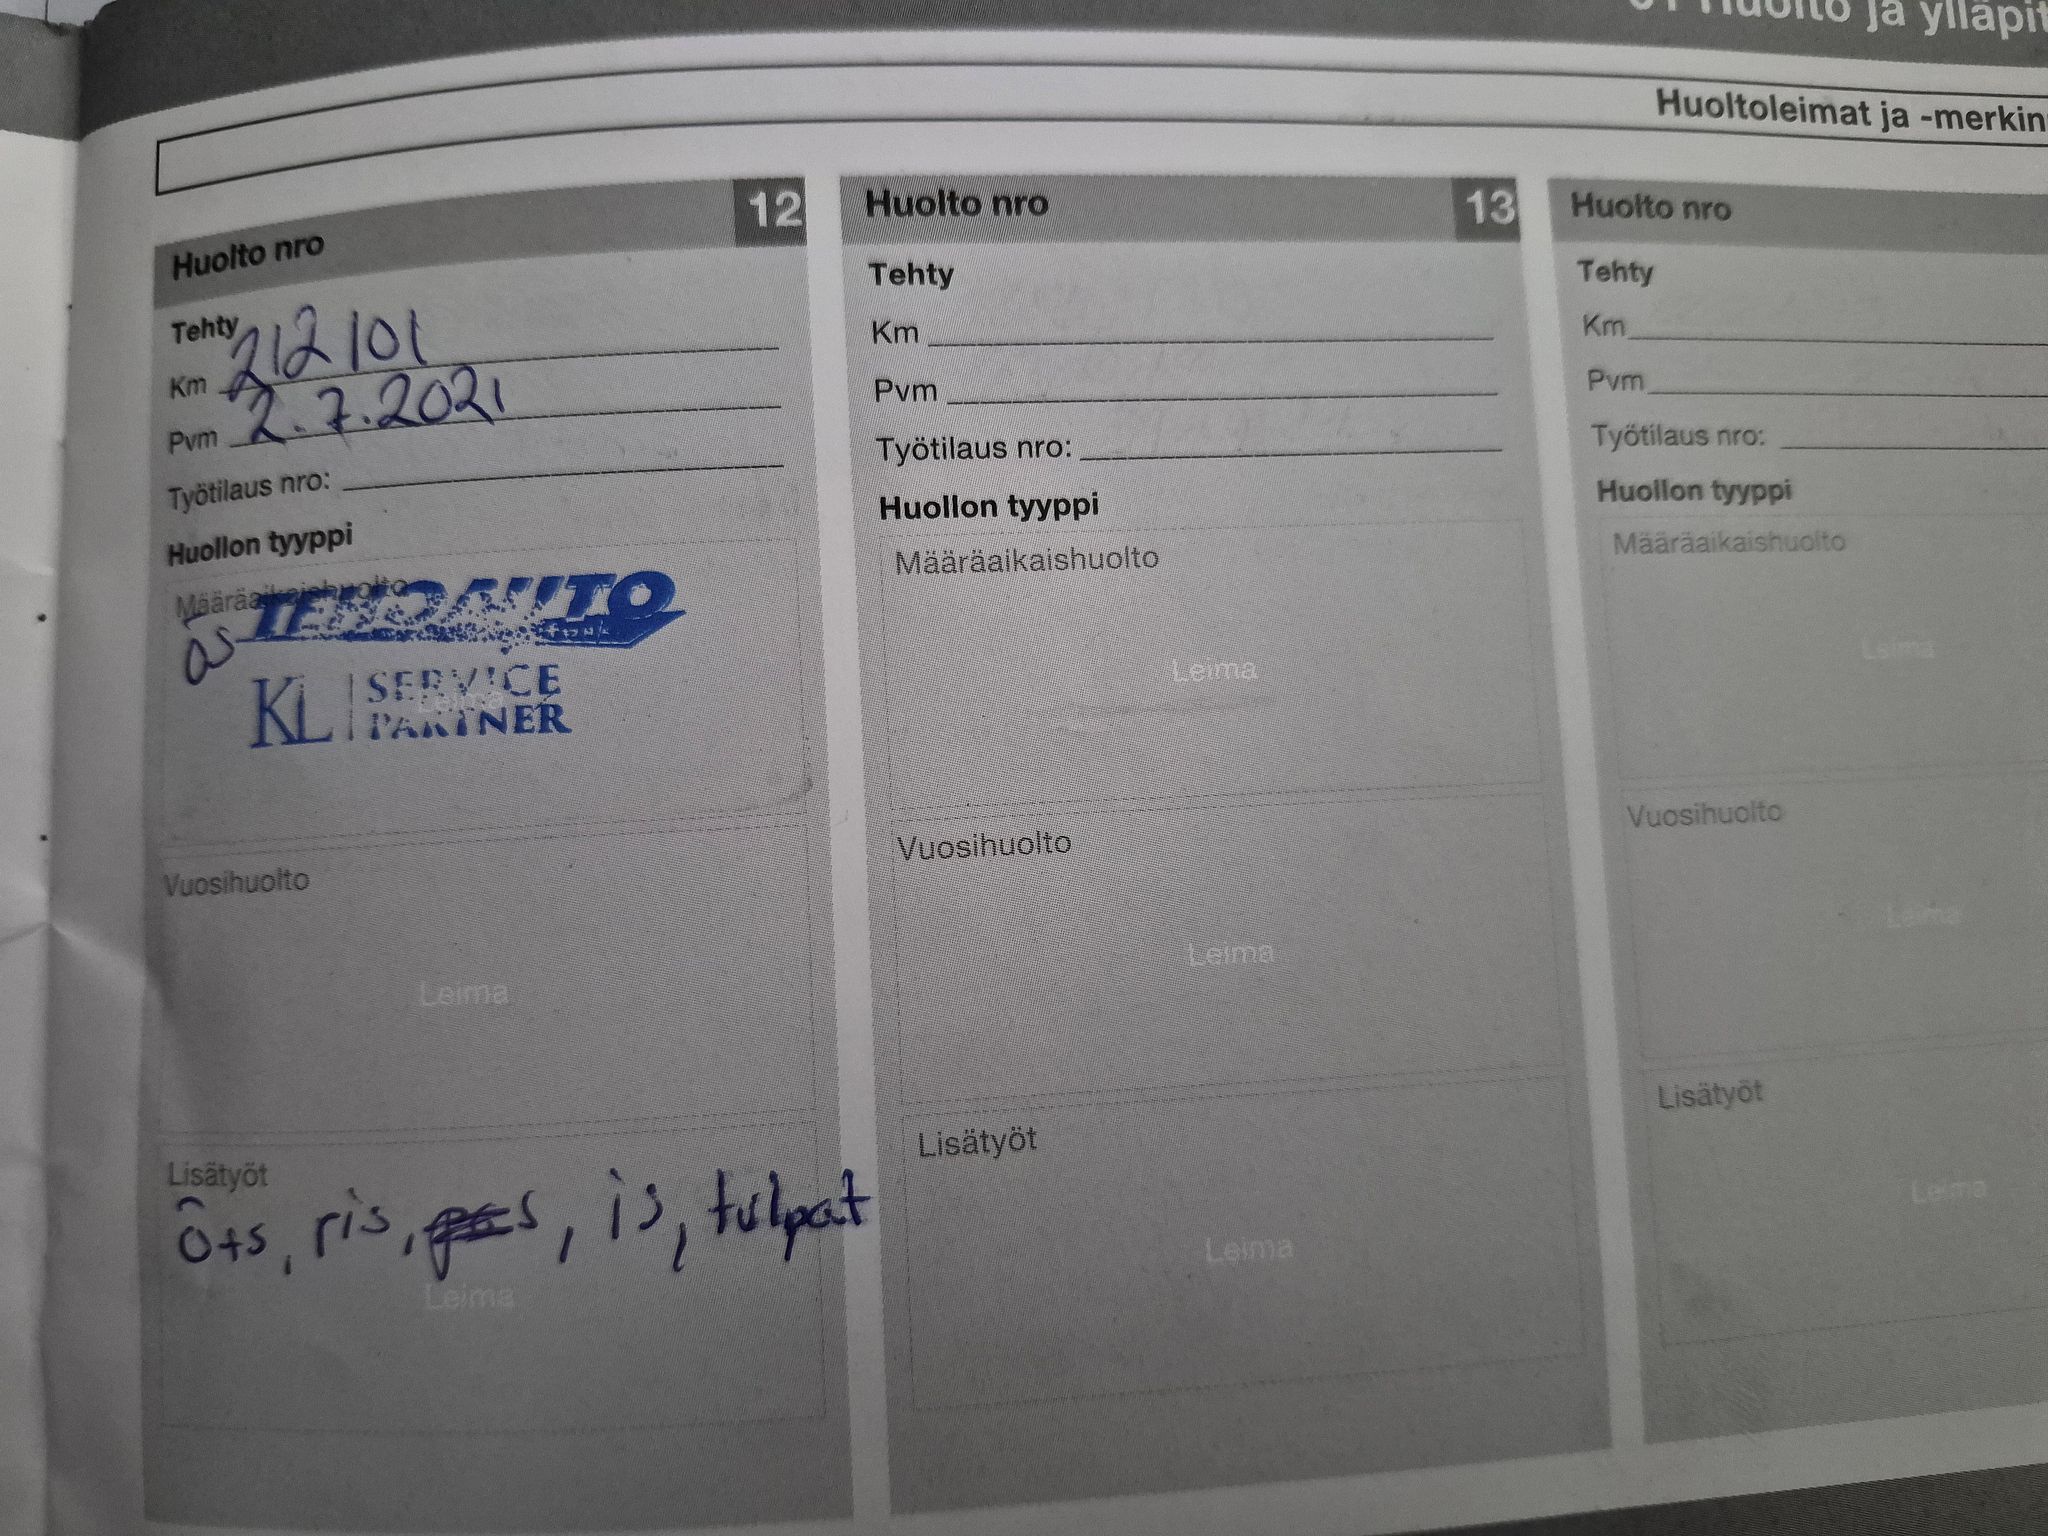 Huolto ja ylläpit
Huoltoleimat ja -merkin
Huolto nro 12
Tehty
Km 212101
Pvm 2.7.2021
Työtilaus nro:
Huollon tyyppi
Määräaikaishuolto
ös
KL SERVICE
PARTNER
Leima
Vuosihuolto
Leima
Lisätyöt
öts, ris, , is, tulpat
Leima
Huolto nro 13
Tehty
Km
Pvm
Työtilaus nro:
Huollon tyyppi
Määräaikaishuolto
Leima
Vuosihuolto
Leima
Lisätyöt
Leima
Huolto nro
Tehty
Km
Pvm
Työtilaus nro:
Huollon tyyppi
Määräaikaishuolto
Leima
Vuosihuolto
Leima
Lisätyöt
Leima